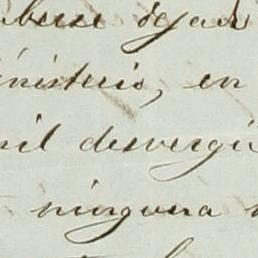 berse dejado
inisterio, en
mil desvergü
ninguna